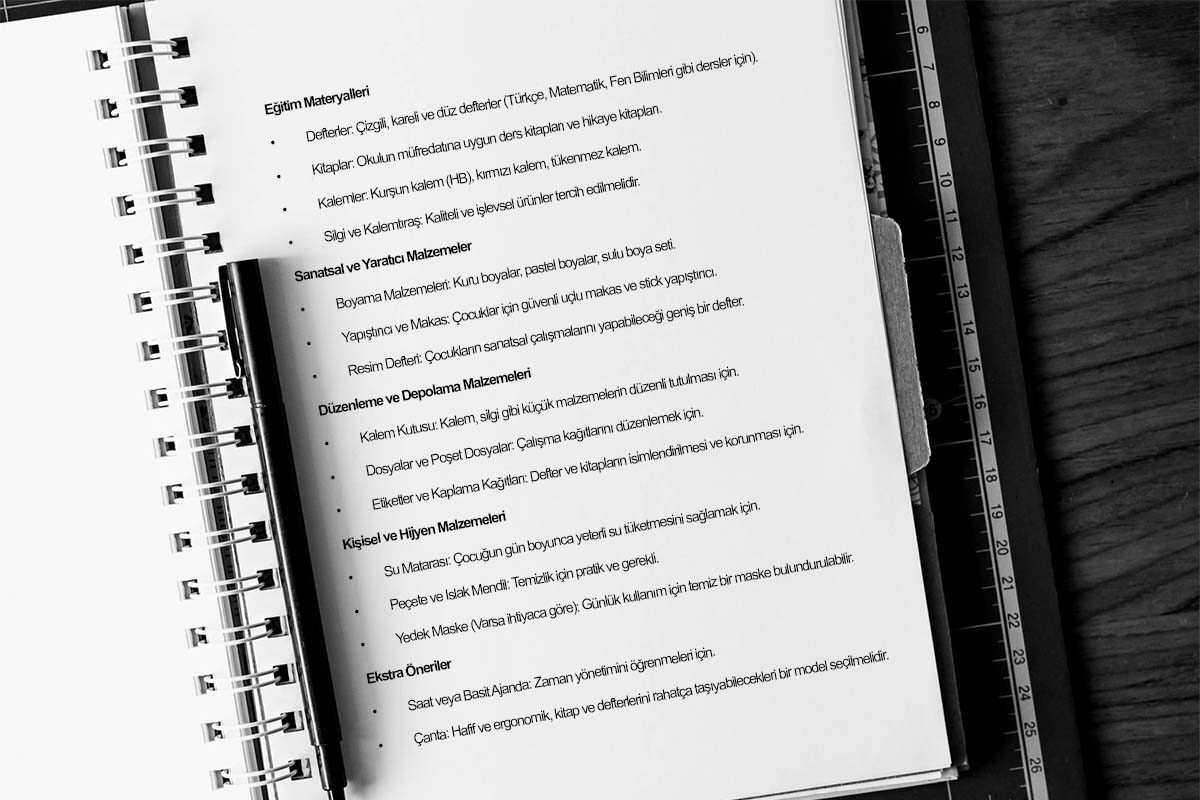 Eğitim Materyalleri
• Defterler: Çizgili, kareli ve düz defterler (Türkçe, Matematik, Fen Bilimleri gibi dersler için).
• Kitaplar: Okulun müfredatına uygun ders kitapları ve hikaye kitapları.
• Kalemler: Kurşun kalem (HB), kırmızı kalem, tükenmez kalem.
• Silgi ve Kalemtıraş: Kaliteli ve işlevsel ürünler tercih edilmelidir.
Sanatsal ve Yaratıcı Malzemeler
• Boyama Malzemeleri: Kuru boyalar, pastel boyalar, sulu boya seti.
• Yapıştırıcı ve Makas: Çocuklar için güvenli uçlu makas ve stick yapıştırıcı.
• Resim Defteri: Çocukların sanatsal çalışmalarını yapabileceği geniş bir defter.
Düzenleme ve Depolama Malzemeleri
• Kalem Kutusu: Kalem, silgi gibi küçük malzemelerin düzenli tutulması için.
• Dosyalar ve Poşet Dosyalar: Çalışma kağıtlarını düzenlemek için.
• Etiketler ve Kaplama Kağıtları: Defter ve kitapların isimlendirilmesi ve korunması için.
Kişisel ve Hijyen Malzemeleri
• Su Matarası: Çocuğun gün boyunca yeterli su tüketmesini sağlamak için.
• Peçete ve Islak Mendil: Temizlik için pratik ve gerekli.
• Yedek Maske (Varsa ihtiyaca göre): Günlük kullanım için temiz bir maske bulundurulabilir.
Ekstra Öneriler
• Saat veya Basit Ajanda: Zaman yönetimini öğrenmeleri için.
• Çanta: Hafif ve ergonomik, kitap ve defterlerini rahatça taşıyabilecekleri bir model seçilmelidir.
6
7
8
9
10
11
12
13
14
15
16
17
18
19
20
21
22
23
24
25
26